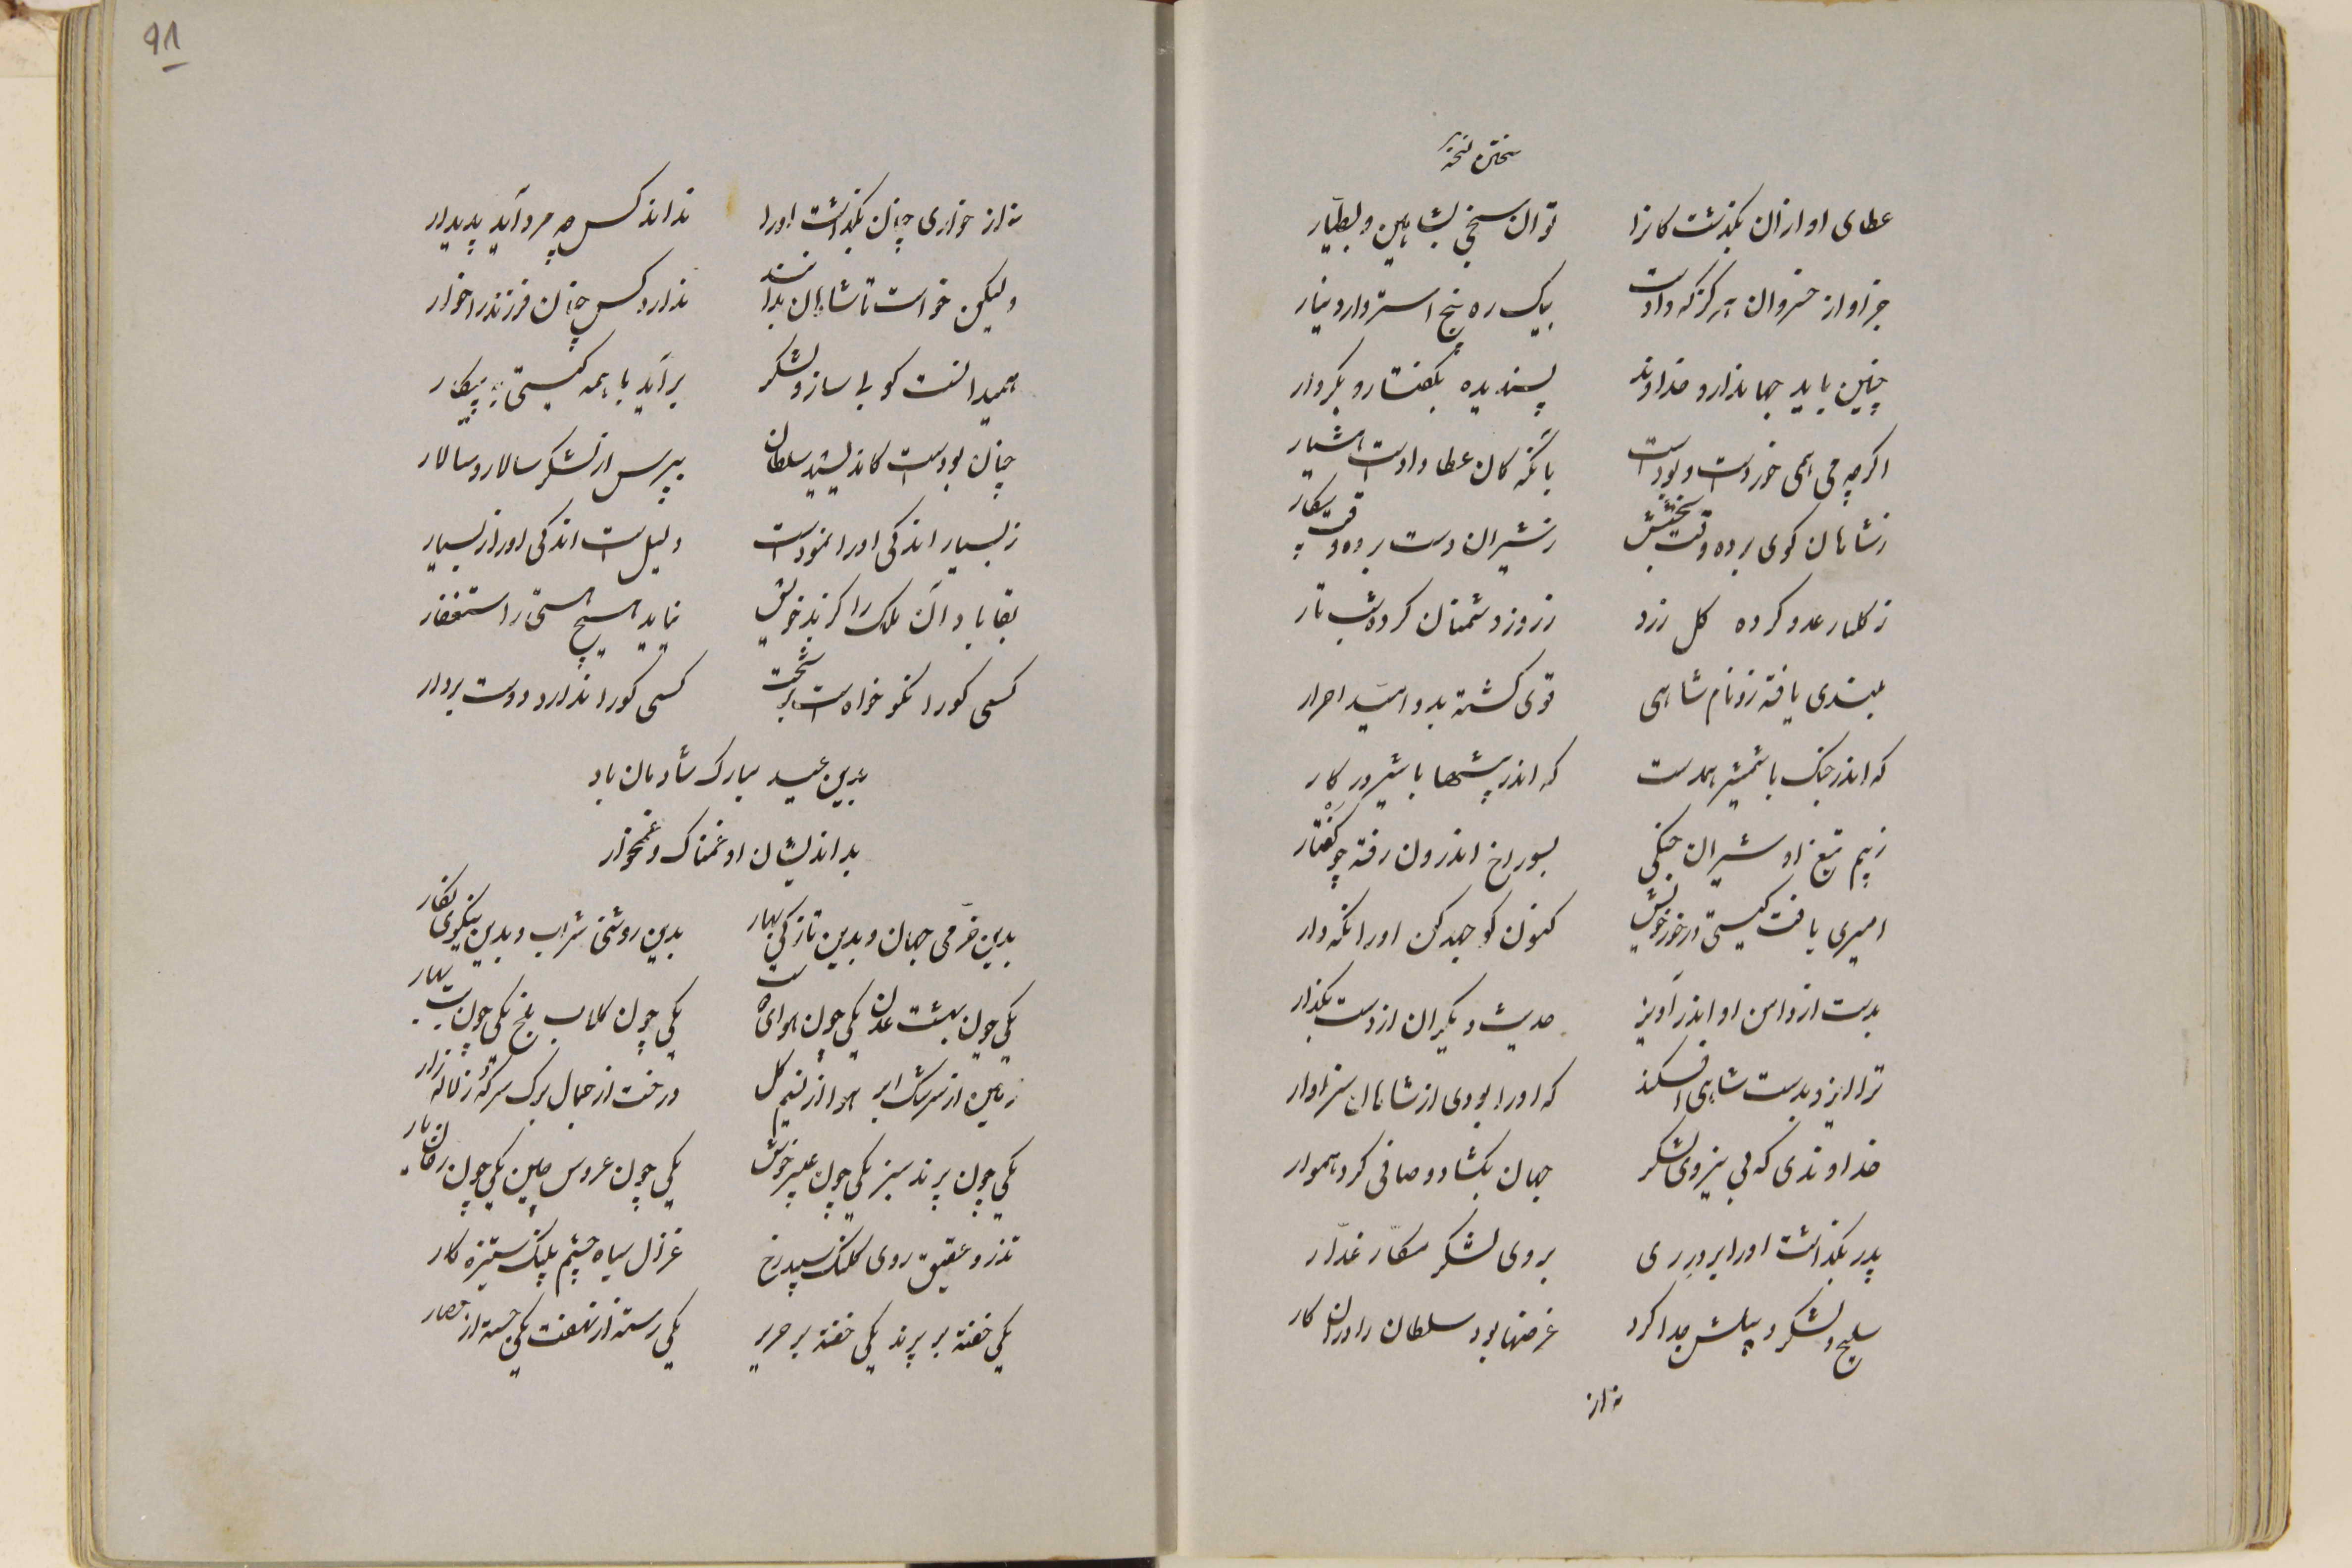 عطای او ازان بگذشت کانرا    توان سختن بشاهین و بطیّار
جز او از خسروان هرگز که دادست    بیک ره پنج اشتروار دینار
چنین باید جهاندار و خداوند    پسندیده بگفتار و بکردار
اگرچه می همی خوردست و بودست    بانگه کان عطا دادست هشیار
ز شاهان کوی برده وقت بخشش    ز شیران دست برده وقت پیکار
ز گلنار عدو کرده گل زرد    ز روز دشمنان کرده شب تار
بلندی یافته زو نام شاهی    قوی گشته بدو امید احرار
که اندر جنک با شمشیر همدست    که اندر بیشها با شیر در کار
ز بیم تیغ او شیران جنکی    بسوراخ اندرون رفته چو کفتار
امیری یافت کیتی درخور خویش    کنون کو جهد کن اورا نکه دار
بدست از دامن او اندر آویز    حدیث دیگران از دست بگذار
ترا ایزد بدست شاهی افکند    که اورا بودی از شاهان سزاوار
خداوندی که بی نیروی لشکر    جهان بکشاد و صافی کرد هموار
پدر بگذاشت اورا بر در ری    بروی لشکر مکّار غدّار
سلیح و لشکر و پیلش جدا کرد    غرضها بود سلطان را دران کار
نه از
۹۸
نه از خواری چنان بگذاشت اورا    نداند کس چه مرد آید پدیدار
ولیکن خواست تا شاهان بدانند    ندارد کس چنان فرزند را خوار
همیدانست کو بی ساز و لشکر    برآید با همه کیتی به پیکار
چنان بودست کاندیشید سلطان    بپرس از لشکر سالار و سالار
ز بسیار اندکی اورا نمودست    دلیل است اندکی اورا ز بسیار
بقا باد آن ملک را کز بد خویش    نیاید هیچ هستی را استغفار
کسی کورا نکو خواه است بر تخت    کسی کورا ندارد دوست بر دار
بدین عید مبارک شادمان باد
بد اندیشان او غمناک و غمخوار
بدین خرّمی جهان و بدین تازکی بهار    بدین روشنی شراب و بدین نیکوی نکار
یکی چون بهشت عدن یکی چون هوای دوست    یکی چون کلاب بلخ یکی چون بت بهار
زمین از سرشک ابر هوا از نسیم کل    درخت از جمال برک سر که ز لاله زار
یکی چون پرند سبز یکی چون عبیر خوش    یکی چون عروس چین یکی چون رخان یار
تذرو عقیق روی کلنک سپید رخ    غزال سیاه چشم پلنک ستیزه کار
یکی خفته بر پرند یکی خفته بر حریر    یکی رسته از نهفت یکی جسته از حصار